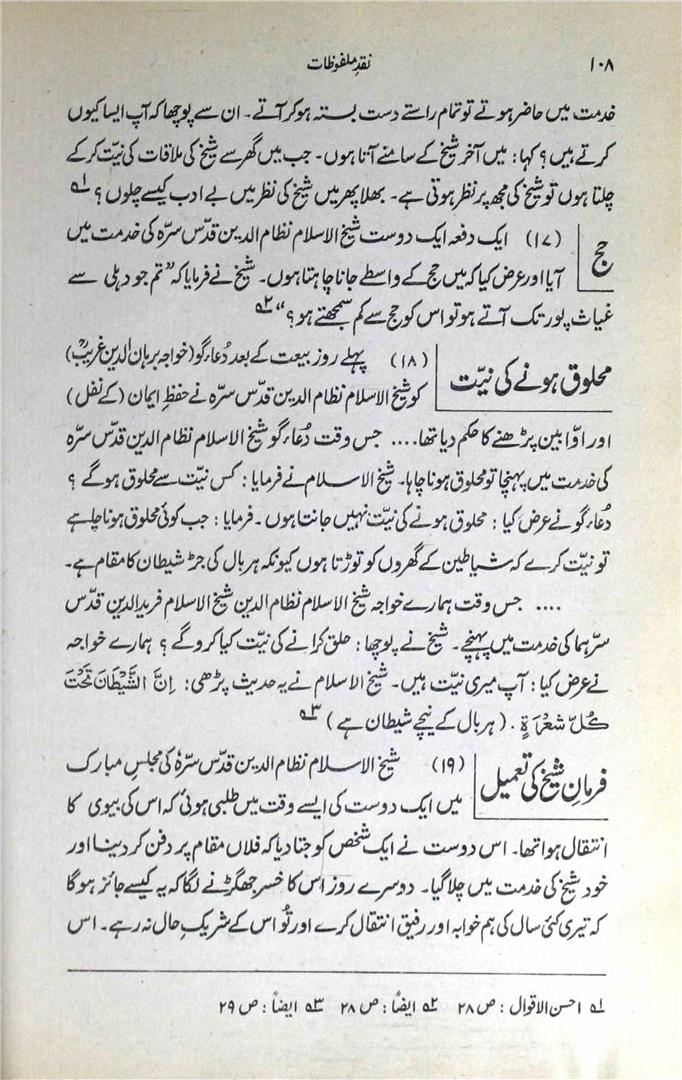 ۱۰۸
نقدِ ملفوظات
خدمت میں حاضر ہوتے تو تمام راستے دست بستہ ہو کر آتے۔ ان سے پوچھا کہ آپ ایسا کیوں
کرتے ہیں؟ کہا: میں آخر شیخ کے سامنے آتا ہوں۔ جب میں گھر سے شیخ کی ملاقات کی نیّت کر کے
چلتا ہوں تو شیخ کی مجھ پر نظر ہوتی ہے۔ بھلا پھر میں شیخ کی نظر میں بے ادب کیسے چلوں؟ ؎۱
حج
(۱۷) ایک دفعہ ایک دوست شیخ الاسلام نظام الدین قدّس سرّہ کی خدمت میں
آیا اور عرض کیا کہ میں حج کے واسطے جانا چاہتا ہوں۔ شیخ نے فرمایا کہ ”تم جو دہلی سے
غیاث پور تک آتے ہو تو اس کو حج سے کم سمجھتے ہو؟“ ؎۲
محلوق ہونے کی نیّت
(۱۸) پہلے روز بیعت کے بعد دُعاء گو (خواجہ برہان الدین غریبؒ)
کو شیخ الاسلام نظام الدین قدّس سرّہ نے حفظِ ایمان (کے نفل)
اور اوّابین پڑھنے کا حکم دیا تھا.... جس وقت دُعاء گو شیخ الاسلام نظام الدین قدّس سرّہ
کی خدمت میں پہنچا تو محلوق ہونا چاہا۔ شیخ الاسلام نے فرمایا: کس نیّت سے محلوق ہو گے؟
دُعاء گو نے عرض کیا: محلوق ہونے کی نیّت نہیں جانتا ہوں۔ فرمایا: جب کوئی محلوق ہونا چاہے
تو نیّت کرے کہ شیاطین کے گھروں کو توڑتا ہوں کیونکہ ہر بال کی جڑ شیطان کا مقام ہے۔
.... جس وقت ہمارے خواجہ شیخ الاسلام نظام الدین شیخ الاسلام فریدالدین قدّس
سرّہما کی خدمت میں پہنچے۔ شیخ نے پوچھا: حلق کرانے کی نیّت کیا کرو گے؟ ہمارے خواجہ
نے عرض کیا: آپ میری نیّت ہیں۔ شیخ الاسلام نے یہ حدیث پڑھی: اِنَّ الشَّیْطَانَ تَحْتَ
کُلِّ شَعْرَۃٍ. (ہر بال کے نیچے شیطان ہے) ؎۳
فرمانِ شیخ کی تعمیل
(۱۹) شیخ الاسلام نظام الدین قدّس سرّہ کی مجلسِ مبارک
میں ایک دوست کی ایسے وقت میں طلبی ہوئی کہ اس کی بیوی کا
انتقال ہوا تھا۔ اس دوست نے ایک شخص کو جتا دیا کہ فلاں مقام پر دفن کر دینا اور
خود شیخ کی خدمت میں چلا گیا۔ دوسرے روز اس کا خسر جھگڑنے لگا کہ یہ کیسے جائز ہوگا
کہ تیری کئی سال کی ہم خوابہ اور رفیق انتقال کرے اور تُو اس کے شریکِ حال نہ رہے۔ اس
؎۱ احسن الاقوال: ص ۲۸ ؎۲ ایضاً: ص ۲۸ ؎۳ ایضاً: ص ۲۹